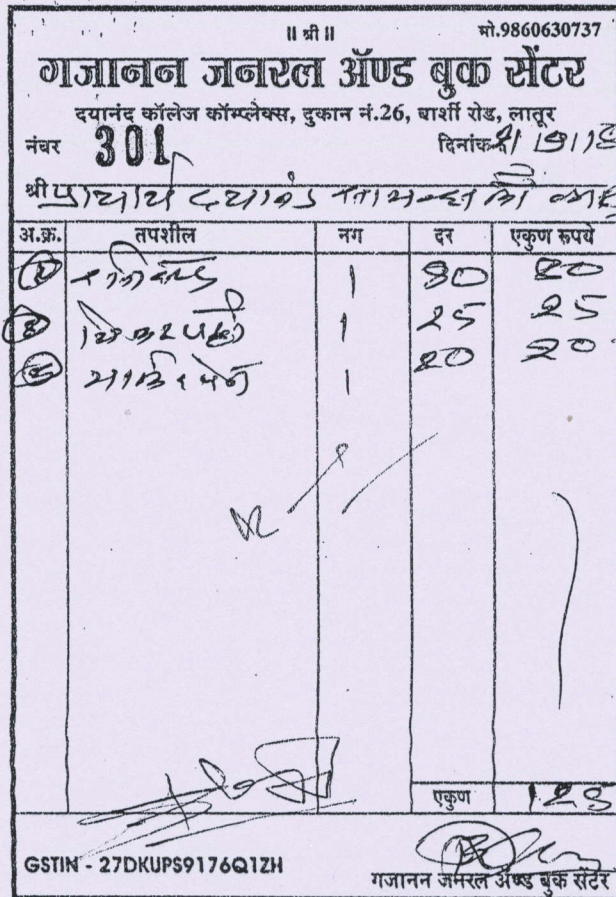 ॥ श्री ॥ मो.9860630737
गजानन जनरल ॲण्ड बुक सेंटर
दयानंद कॉलेज कॉम्प्लेक्स, दुकान नं.26, बार्शी रोड, लातूर
नंबर 301 दिनांक
श्री प्राचार्य दयानंद
अ.क्र. तपशील नग दर एकुण रूपये
1 80 80
1 25 25
1 20 20
एकुण 125
GSTIN - 27DKUPS9176Q1ZH
गजानन जनरल ॲण्ड बुक सेंटर